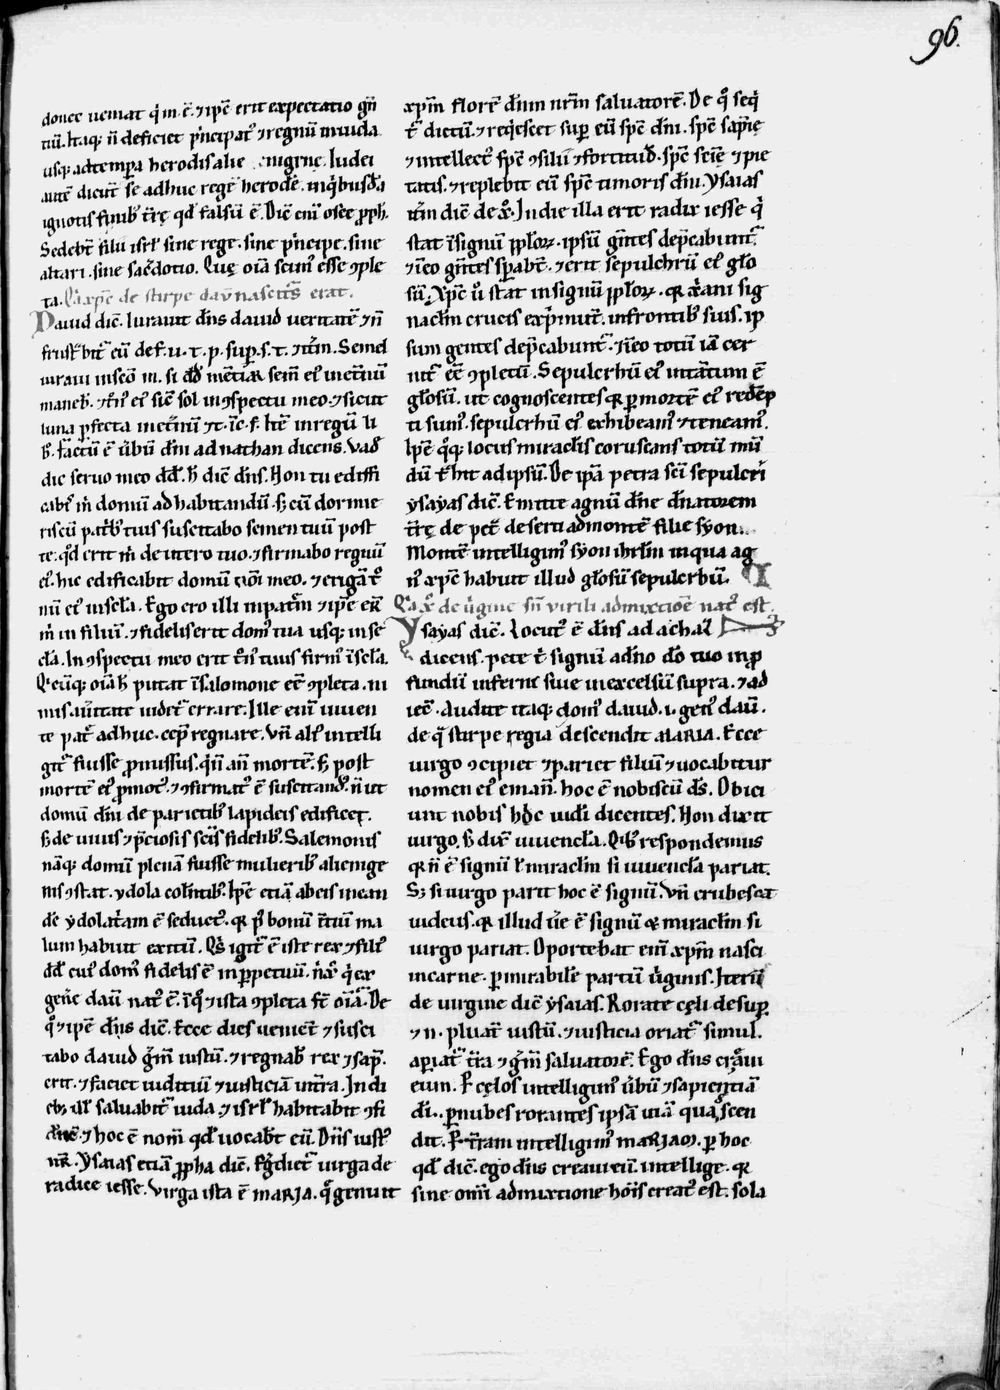 96.
donec ueniat q̇ m̄.ē. ⁊ ip̄e erit expectatio gn̄
tiū. Itaq; n̄ deficiet p̄ncipat᷒ ⁊ regnū iniuda
usq; ad tempa herodis alienigenę. Iudei
autē dicūt se adhuc regē herodē. inq̇busdā
ignotis finib᷒ t̄rę qd̄ falsū ē. Dic̄ eni osee p̄ph.
Sedebt̄ filii isrl̄ sine rege. sine p̄ncipe. sine
altari. sine sac̄dotio. Quę oīa scim᷒ esse ꝯple
ta. Q̄a xp̄c de stirpe dauid nascitur᷒ erat.
Dauid dic̄. Iurauit dn̄s dauid ueritatē ⁊ n̄
frustᵃbit᷑ eū de f. u. t. p. sup. s. t. ⁊ itm̄. Semel
iuraui insc̄o m. si dd̄ m̄tiar sem̄ ei᷒ inet̄nū
maneb. ⁊ t̄n᷒ ei᷒ sic̄ sol inꝯspectu meo ⁊ sicut
luna p̄fecta inet̄nū ⁊ t. ic̄. f. Itē inregū li
b. factū ē ūbū dn̄i ad nathan dicens. Vad̄
dic seruo meo dd̄. h̄ dic̄ dn̄s. Non tu edifi
cab᷒ m̄ domū ad habitandū. s; cū dormie
ris cū patᵇ᷒ tuis suscitabo semen tuū post
te. qd̄ erit m̄ de utero tuo. ⁊ firmabo regnū
ei᷒. hic edificabit domū nōi meo. ⁊ erigā t᷒
nū ei᷒ insc̄la. Ego ero illi inpatr̄m ⁊ ip̄e er̄
m̄ in filiū. ⁊ fidelis erit dom᷒ tua usq; in se
cl̄a. In ꝯspectu meo erit t̄n᷒ tuus firm᷒ īsc̄la.
Q̇cūq; oīa h̄ putat īsalomone ec̄ ꝯpleta. ni
mis aūtitate uidet᷑ errare. Ille eni uiuen
te pat᷑ adhuc. cep̄ regnare. Vn̄ alit᷑ intelli
git᷑ fuisse p̄missus. q̇n̄ an̄ mortē. s; post
mortē ei᷒ p̄mot᷒. ⁊ ꝯfirmat᷒ ē suscitand᷒. n̄ ut
domū dn̄i de parietib᷒ lapideis edificet.
s; de uiuis ⁊ p̄ciosis sc̄is fidelib᷒. Salemonis
nāq; domū plenā fuisse mulierib᷒ alienige
nis ꝯstat. ydola colentib᷒. Ip̄e etiā ab eis inean
de ydolatiam ē seduct᷒. q̄ p᷒ bonū itiū ma
lum habuit exitū. Q̇s igit᷑ ē iste rex ⁊ fili᷒
dd̄ cui᷒ dom᷒ fidelis ē inp̄petuū. n̄ x᷒ q̇ ex
gen̄e dauid nat᷒ ē. īq᷒ ⁊ ista ꝯpleta st̄ oīa. De
q᷒ ⁊ ip̄e dn̄s dic̄. Ecce dies uenient ⁊ susci
tabo dauid gm̄ iustū. ⁊ regnab̄ rex ⁊ sap̄.
erit. ⁊ faciet iuditiū ⁊ iusticiā int̄ra. In di
eb; ill᷒ saluabit᷑ iuda. ⁊ isrl̄ habitabit ꝯfi
dn̄t. ⁊ hoc ē nom̄ qd̄ uocabt̄ eū. Dn̄s iust᷒
nr̄. Ysaias etiā p̄pha dic̄. Egdiet᷑ uirga de
radice iesse. Virga ista ē maria. q̄ genuit
xpm̄ florē dn̄m nr̄m saluatorē. De q᷒ seq̇
t᷑ dictū. ⁊ reqiescet sup eū sp̄c dn̄i. sp̄c sapīę
⁊ intellect᷒ sp̄c ꝯsilii ⁊ fortitud̄. sp̄c sciē ⁊ pie
tatis. ⁊ replebit eū sp̄c timoris dn̄i. Ysaias
itm̄ dic̄ de x᷒. In die illa erit radix iesse q̇
stat īsignū pp̄loꝝ. ipsū gn̄tes dep̄cabunt᷑
⁊ īeo gn̄tes sp̄abt̄. ⁊ erit sepulchrū ei᷒ glo
sū. Xp̄c ū stat insignū pp̄loꝝ. q̄ xr̄ani sig
naclm̄ crucis exp̄munt. infrontib᷒ suis. ip
sum gentes dep̄cabunt᷑. ⁊ īeo totū iā cer
nit᷑ ec̄ ꝯpletū. Sepulcrhū ei᷒ intantum ē
glosū. ut cognoscentes q̄ p mortē ei᷒ redēp
ti sum᷒. sepulcrhū ei᷒ exhibeam᷒ ⁊ teneam᷒.
Ip̄e q᷒q; locus miraclis coruscans totū mū
dū t᷑hit ad ipsū. De ipā petra sc̄i sepulcri
ysayas dic̄. Emitte agnū dn̄e dn̄atorem
t̄rę de pet̄ deserti ad montē filie syon.
Montē intelligim᷒ syon ihrl̄m inqua ag
n᷒ xp̄c habuit illud glosū sepulcrhū.
Q̄a x᷒ de ūgine sn̄ virili admixtiōe nat᷒ est.
Ysayas dic̄. Locut᷒ ē dn̄s ad achaz
dicens. pete t̄ signū adn̄o dō tuo inp̄
fundū inferni siue inexcelsū supra. ⁊ ad
iec̄. Audite itaq; dom᷒ dauid. i. gen᷒ dauid.
de q̄ stirpe regia descendit maria. Ecce
uirgo ꝯcipiet ⁊ pariet filiū ⁊ uocabitur
nomen ei᷒ eman̄. hoc ē nobiscū ds̄. Obici
unt nobis hoc iudi dicentes. Non dixit
uirgo. s; dix̄ iuuencla. Qib᷒ respondemus
q̄ n̄ ē signū l᷒ miraclm̄ si iuuencla pariat.
S; si uirgo parit hoc ē signū. Vn̄ erubescat
iudeus. q̄ illud ūe ē signū & miraclm̄ si
uirgo pariat. Oportebat eni xpm̄ nasci
incarne. p mirabile partū ūginis. Iterū
de uirgine dic̄ ysaias. Rorate cęli desup.
⁊ n. pluat̄ iustū. ⁊ iusticia oriat᷑ simul.
apiat᷑ t̄ra ⁊ gm̄ saluatorē. Ego dn̄s creaui
eum. P̄ cęlos intelligim᷒ ūbū ⁊ sapientiā
di. p nubes rorantes ipsā uiā qua descen
dit. P̄ t̄ram intelligim᷒ mariam. p hoc
qd̄ dic̄. ego dn̄s creaui eū. intellige. q̄
sine omi admixtione hōis creat᷒ est. sola